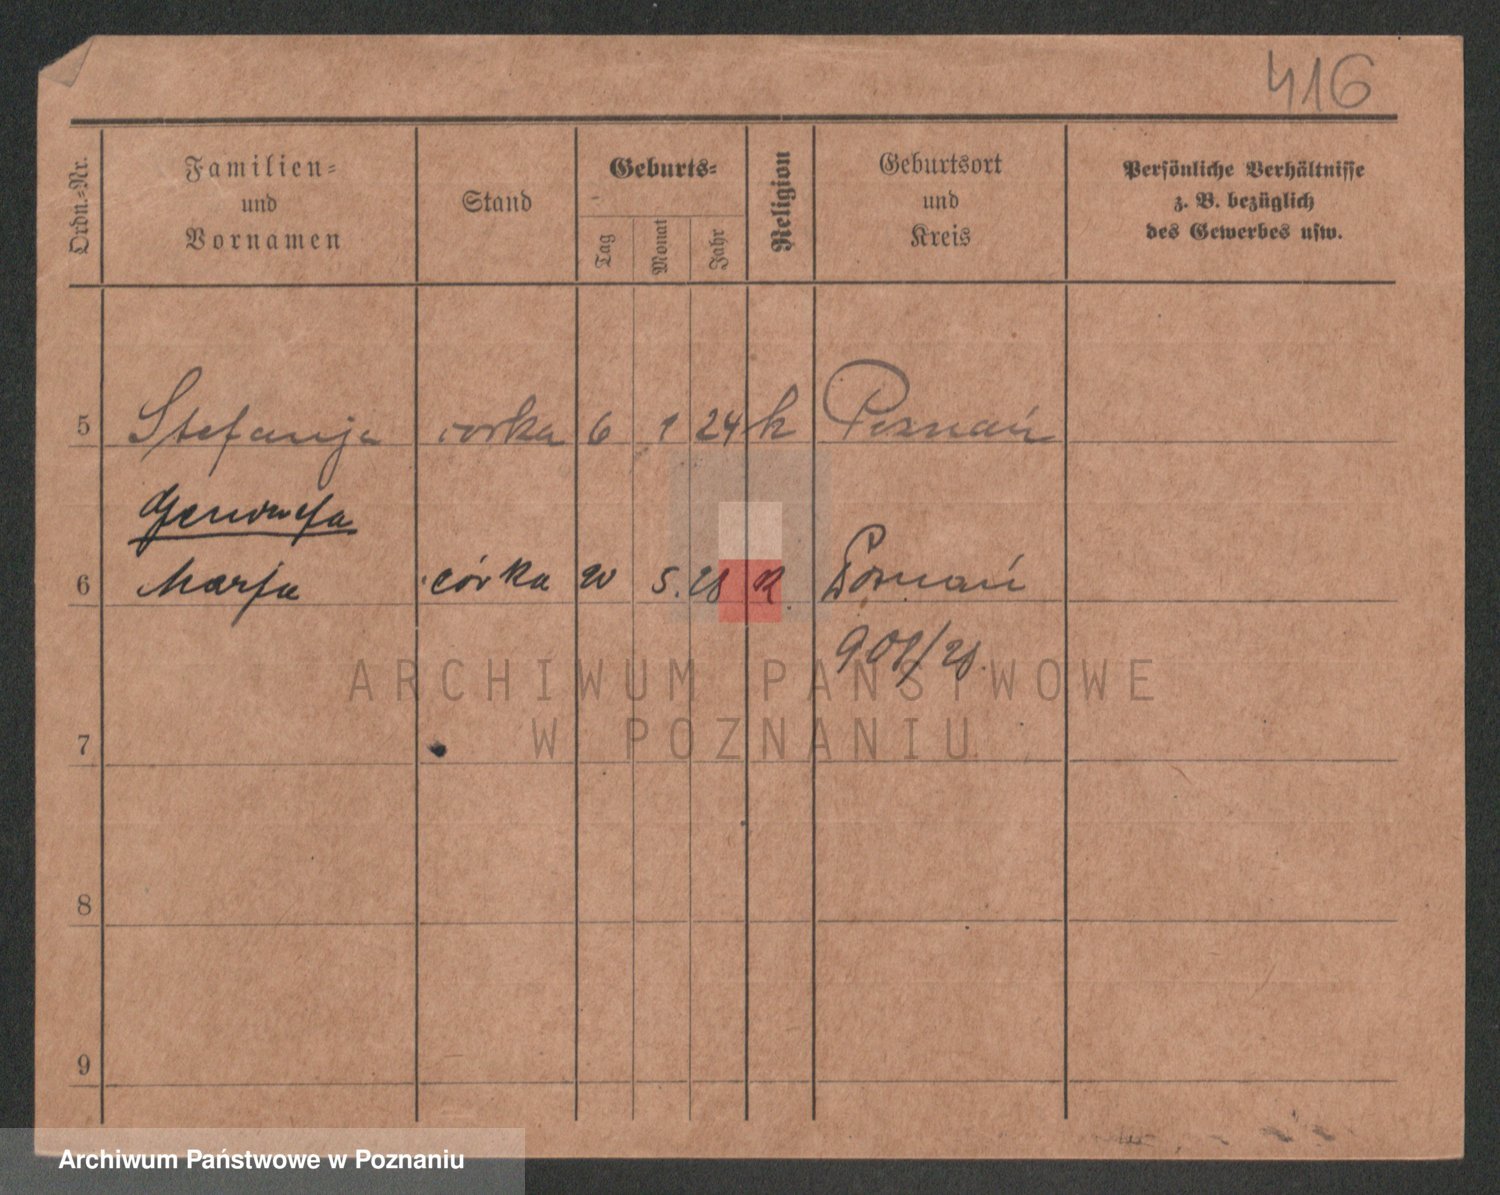 416
Ordn.-Nr.
Familien-
und
Vornamen
Stand
Geburts-
Tag
Monat
Jahr
Religion
Geburtsort
und
Kreis
Persönliche Verhältnisse
z. B. bezüglich
des Gewerbes usw.
5 Stefanja corka 6 1 24 k Poznań
Genowefa
6 Marja córka 20 5. 28 K. Poznań
908/28.
ARCHIWUM PAŃSTWOWE
W POZNANIU
7
8
9
Archiwum Państwowe w Poznaniu